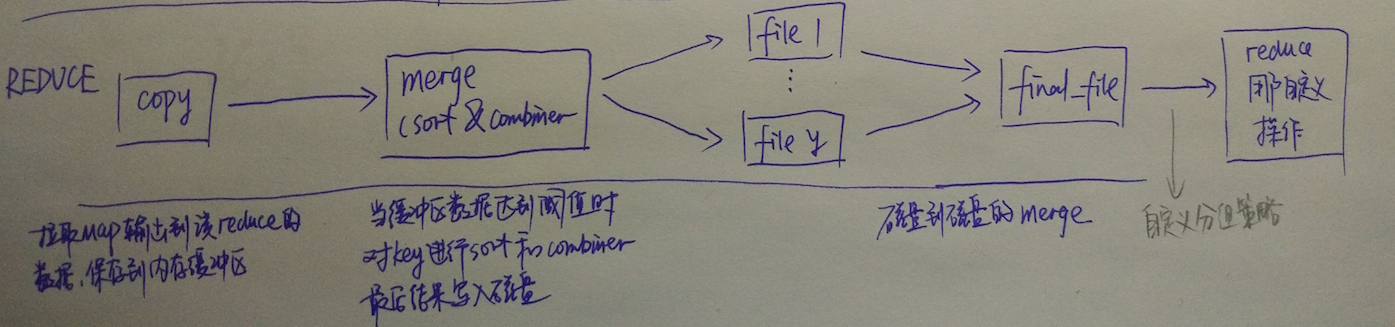 REDUCE
copy
merge
(sort & combiner
file 1
⋮
file y
final_file
reduce
用那自定义
操作
拉取Map输出到该reduce的
数据,保存到内存缓冲区
当缓冲区数据达到阈值时
对key进行sort和combiner
最后结果写入磁盘
磁盘到磁盘的merge
自定义分组策略